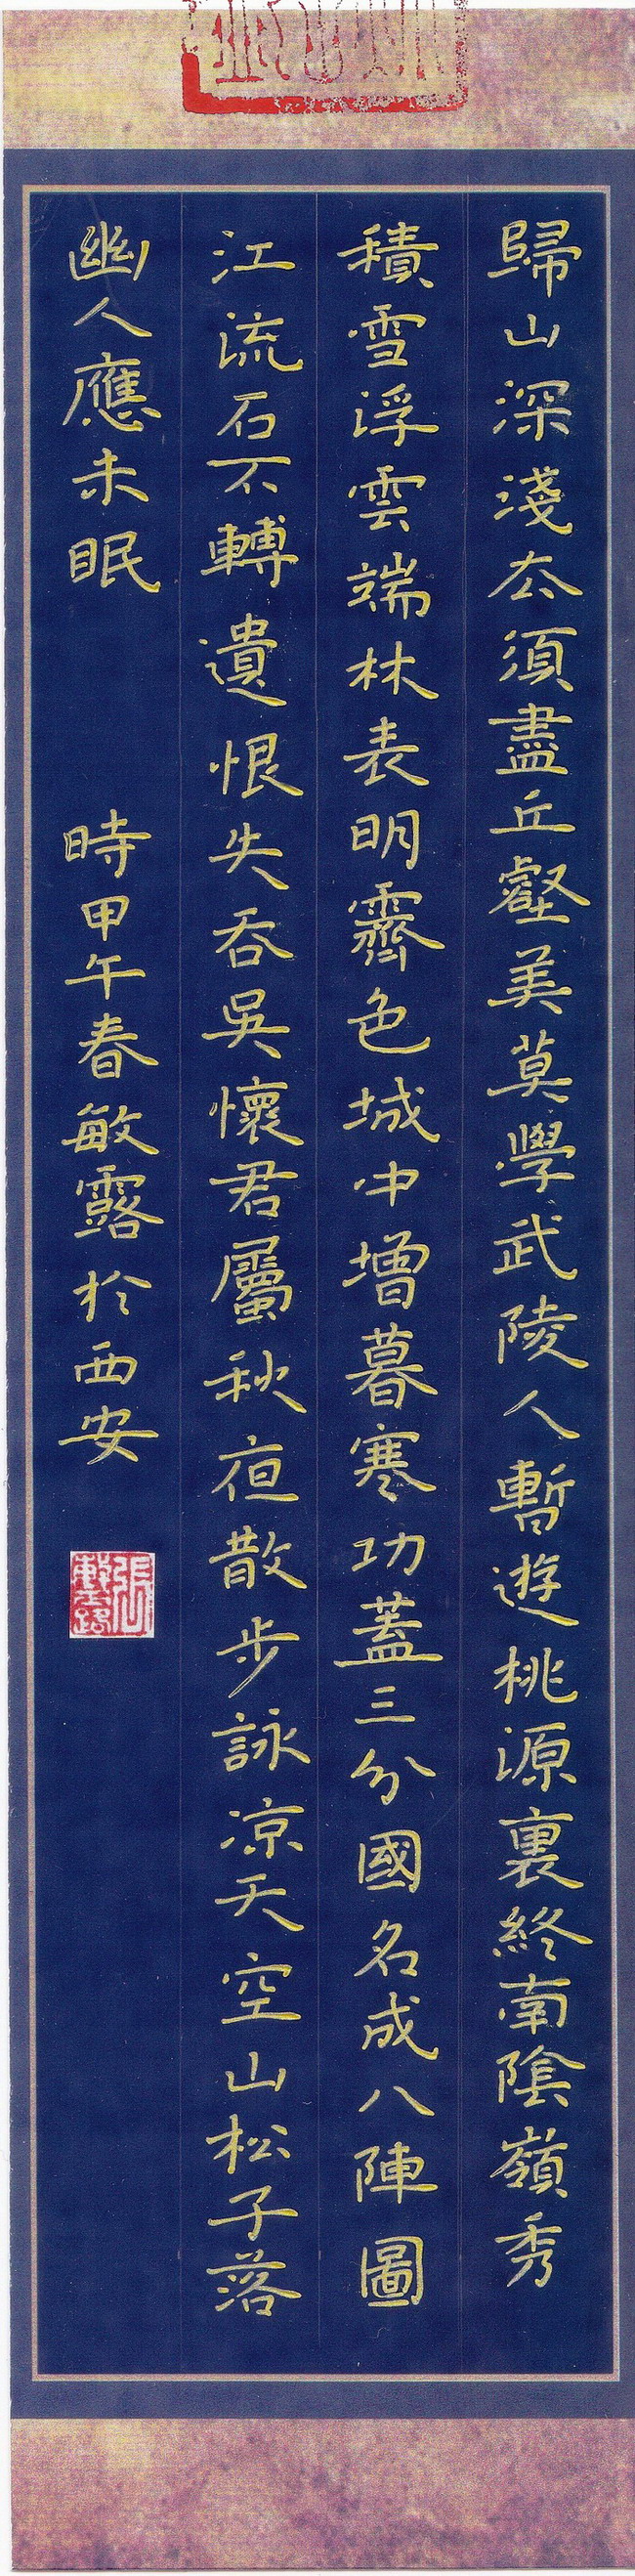 歸山深淺去須盡丘壑美莫學武陵人暫遊桃源裏終南陰嶺秀
積雪浮雲端林表明霽色城中增暮寒功蓋三分國名成八陣圖
江流石不轉遺恨失吞吳懷君屬秋夜散步詠凉天空山松子落
幽人應未眠 時甲午春敏露於西安
張敏露